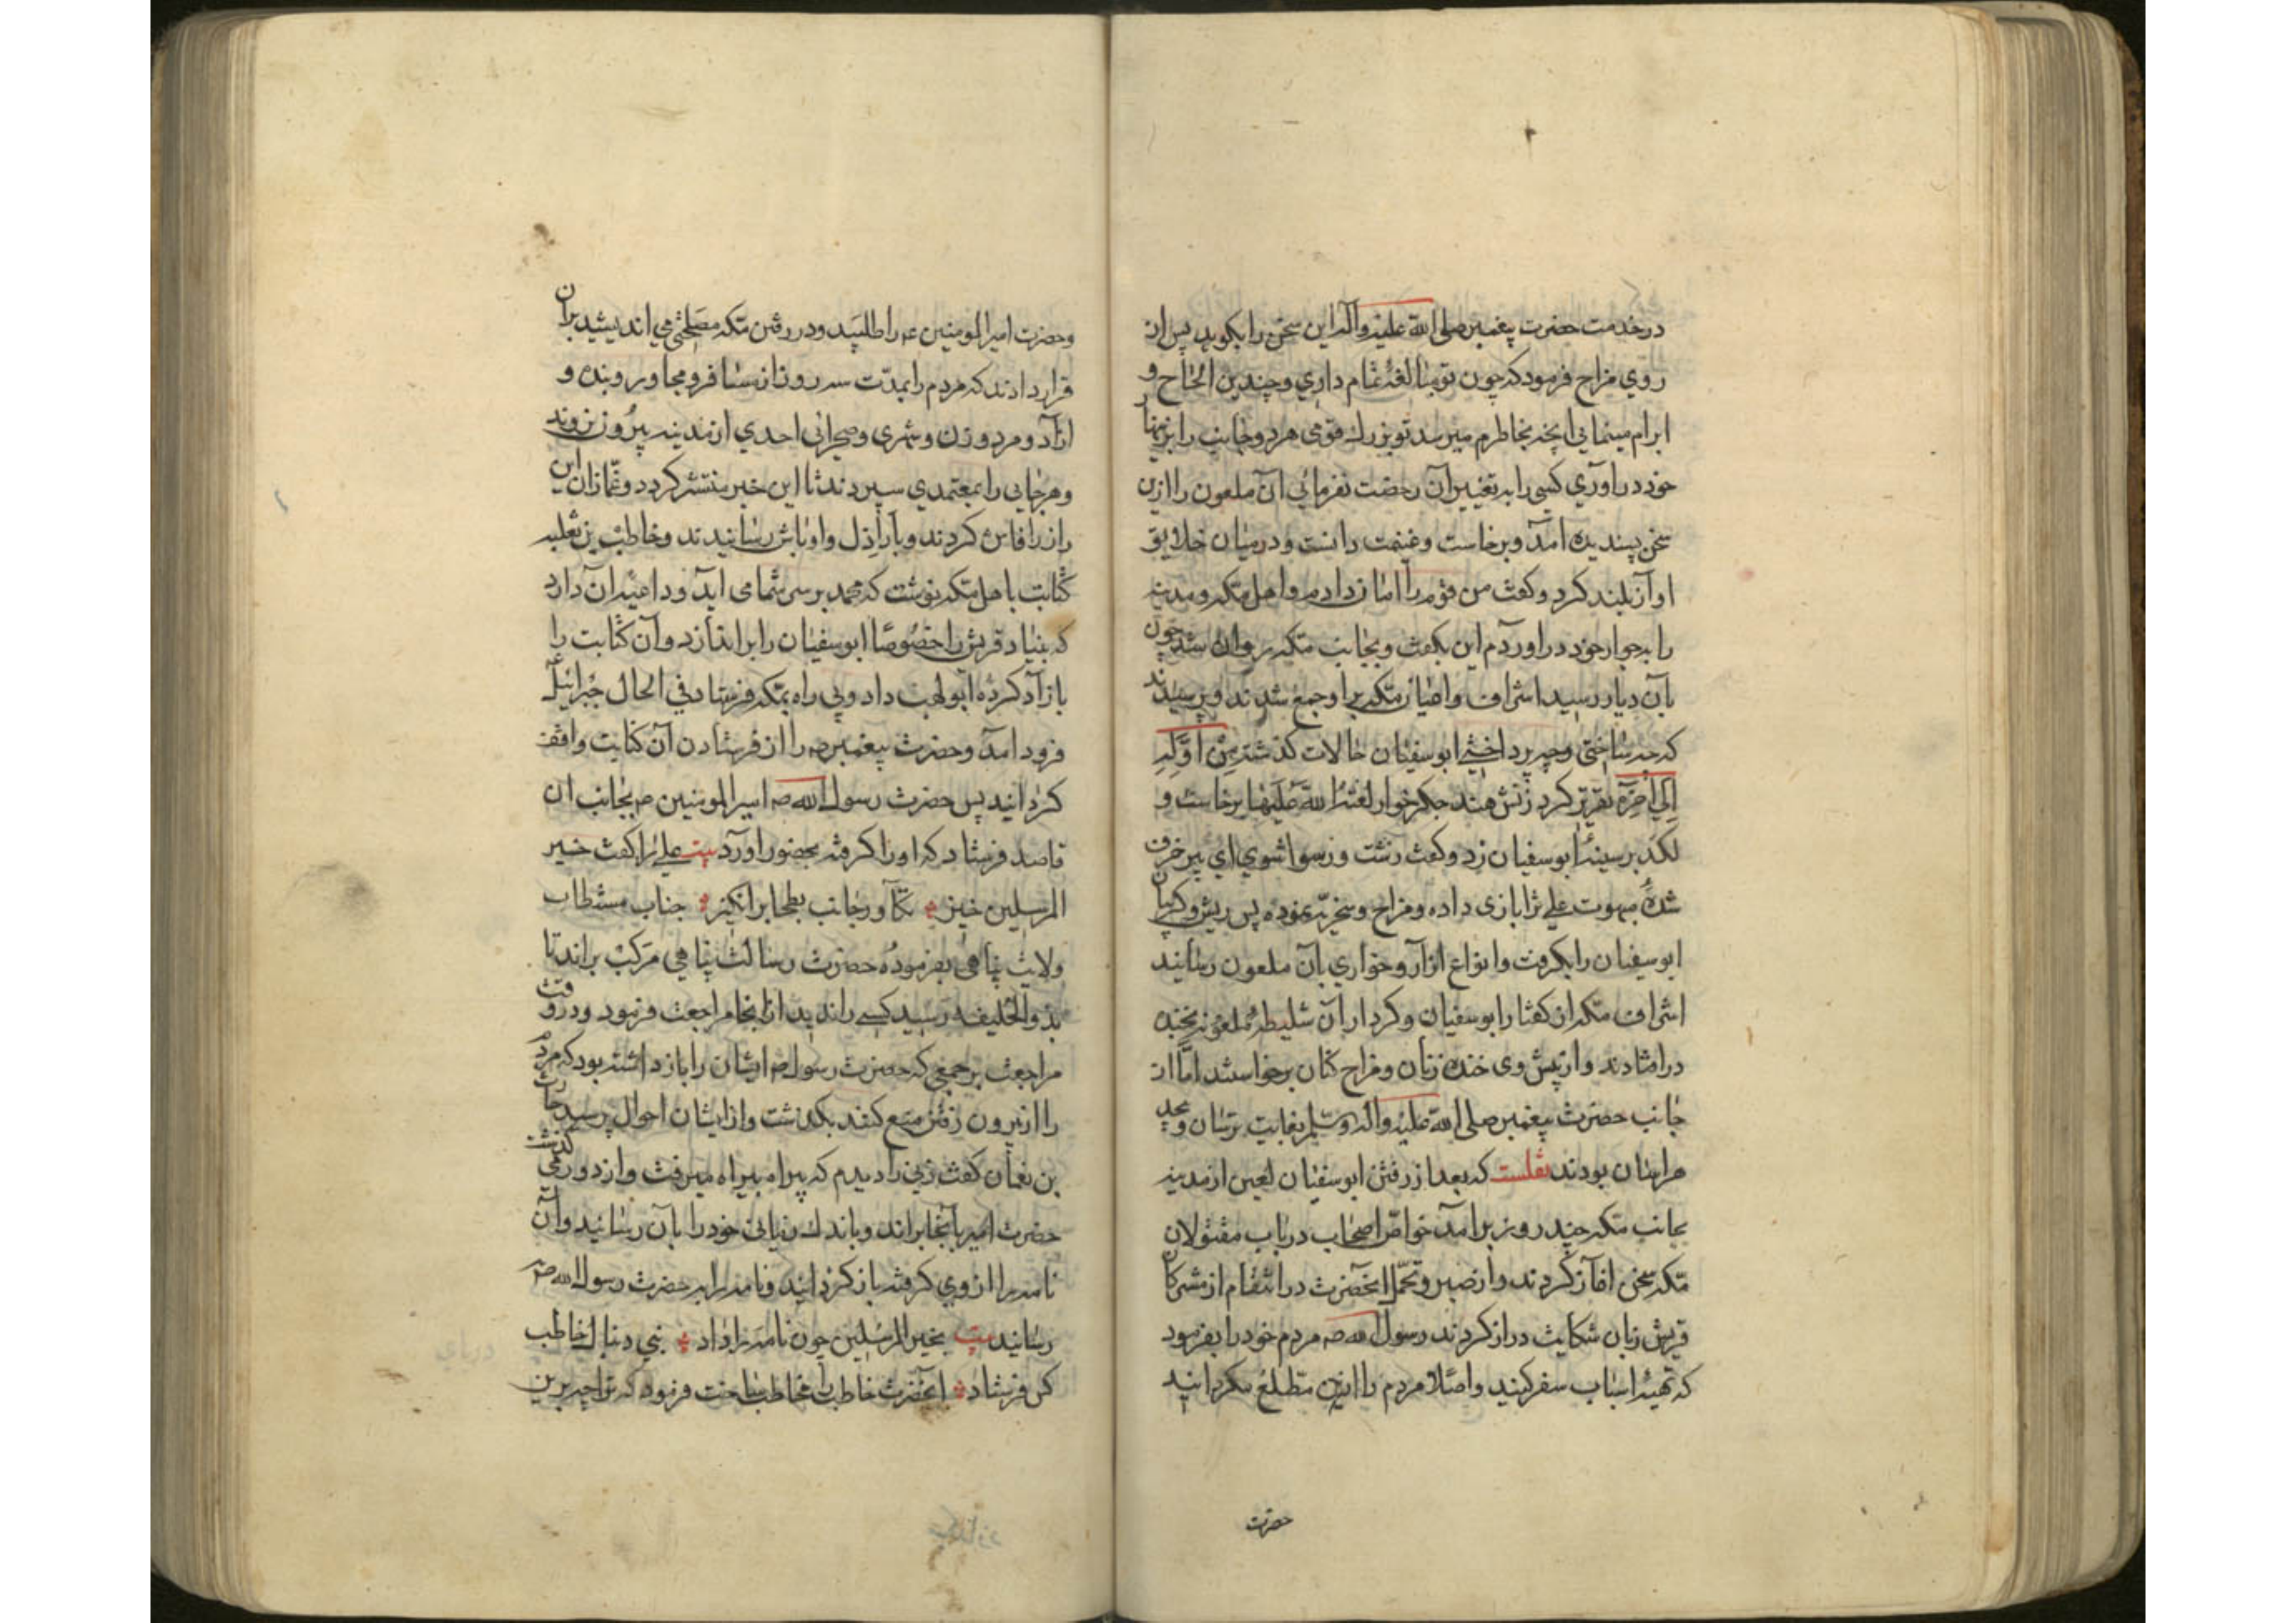 در خدمت حضرت پیغمبر صلی الله علیه وآله این سخن را بکوید پس از
روی مزاح فرمود که چون تو مبالغهٔ تمام داری و چندین الحاح و
ابرام مینمائی انچه بخاطرم میرسد تو بزرك قومی هر دو جانب را بزینهار
خود در آوری کسی را به تغییر آن رخصت نفرمائی آن ملعون را ازین
سخن پسندیده آمد و برخاست و غنیمت دانست و در میان خلایق
اواز بلند کرد و کفت من قوم را امان دادم و اهل مکه و مدینه
را بجوار خود در اوردم این بکفت و بجانب مکه روان شد چون
بآن دیار رسید اشراف واعیان مکه برا و جمع شدند و پرسیدند
که چه ساختی و چه پرداختی ابوسفیان حالات کذشته مِنْ اوّلِهِ
اِلی آخِرِه تقریر کرد زنش هند جکرخوار لعنة الله علیها برخاست و
لکد بر سینهٔ ابوسفیان زد وکفت زشت و رسوا شوی ای پیر خرف
شدهٔ مبهوت علی ترا بازی داده ومزاح و سخریّه نموده پس ریش و کریبان
ابوسفیان را بکرفت وانواع ازار و خواری بآن ملعون رسانید
اشراف مکه از کفتار ابوسفیان و کردار آن شلیطهٔ ملعونه بخنده
در افتادند و از پیش وی خنده زنان و مزاح کنان برخواستند امّا از
جانب حضرت پیغمبر صلی الله علیه وآله وسلم بغایت ترسان و بیحد
هراسان بودند نقلست که بعد از رفتن ابوسفیان لعین از مدینه
بجانب مکه چند روز برامد خواصّ اصحاب در باب مقتولان
مکه سخن اغاز کردند و از صبر و تحمل انحضرت در انتقام از مشرکان
قریش زبان شکایت دراز کردند رسول الله صه مردم خود را بفرمود
که تهیهٔ اسباب سفر کنید واصلا مردم را ازین مطلع مکردانید
حضرت
وحضرت امیرالمومنین ع را طلبید و در رفتن مکه مصلحتی می اندیشید بران
قرار دادند که مردم را بمدّت سه روز از مسافر و مجاور و بنده و
ازاد و مرد و زن و شهری و صحرائی احدی از مدینه بیرون نروند
وهر جایی را بمعتمدی سپردند تا این خبر منتشر کردد و غمّازان این
راز را فاش کردند و بآراذل و اوباش رسانیدند و خاطب بن ثعلبه
کتابت باهل مکه نوشت که محمد بر سر شما می آید و داعیهٔ آن دارد
که بنیاد قریش را خصوصًا ابوسفیان را براندازد و آن کتابت را
بازاد کرده ابولهب داد و پی راه بمکه فرستاد فی الحال جبرائیل ع
فرود امد و حضرت پیغمبر صه را از فرستادن آن کتابت واقف
کردانید پس حضرت رسول الله صه امیرالمومنین ع بجانب ان
قاصد فرستاد که او را کرفته بحضور اورد بیت علی را کفت خیر
المرسلین خیز تکآور جانب بطحا برانکیز جناب مستطاب
ولایت پناهی بفرمودهٔ حضرت رسالت پناهی مرکب براند تا
بذوالحلیفه رسید کسی را ندید از انجا مراجعت فرمود و در وقت
مراجعت بر جمعی که حضرت رسول صه ایشان را بازداشته بود که مردم
را از بیرون رفتن منع کنند بکذشت و از ایشان احوال پرسید حارث
بن نعمان کفت زنی را دیدم که پیراه بیراه میرفت و از دور می کذشت
حضرت امیر بآنجا براند و باندك زمانی خود را بآن رسانید و آن
نامه را از وی کرفته باز کردانید و نامه را به حضرت رسول الله صه
رسانید بیت بخیر المرسلین چون نامه را داد نبی دنبال خاطب
کس فرستاد آنحضرت خاطب را مخاطب ساخت فرمود که ترا چه برین